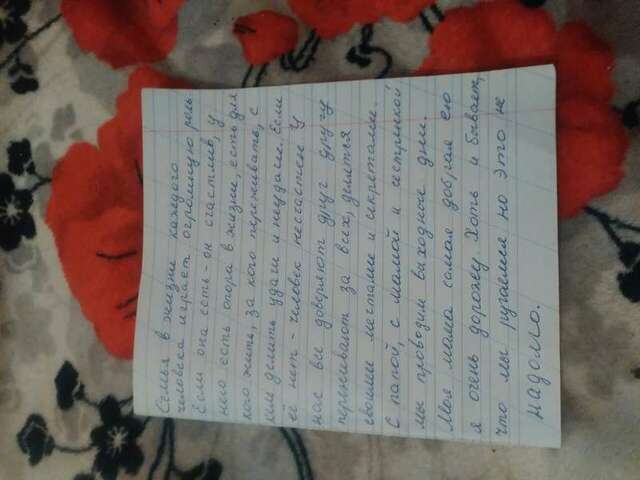 Семья в жизни каждого
человека играет огромную роль
Если она есть - он счастлив, у
него есть опора в жизни, есть для
кого жить, за кого переживать, с
кем делить удачи и неудачи. Если
её нет - человек несчастен У
нас все доверяют друг другу
переживают за всех, делятся
своими мечтами и секретами.
С папой, с мамой и сестрёнкой
мы проводим выходные дни.
Моя мама самая добрая ею
я очень дорожу. Хоть и бывает,
что мы ругаемся но это не
надолго.